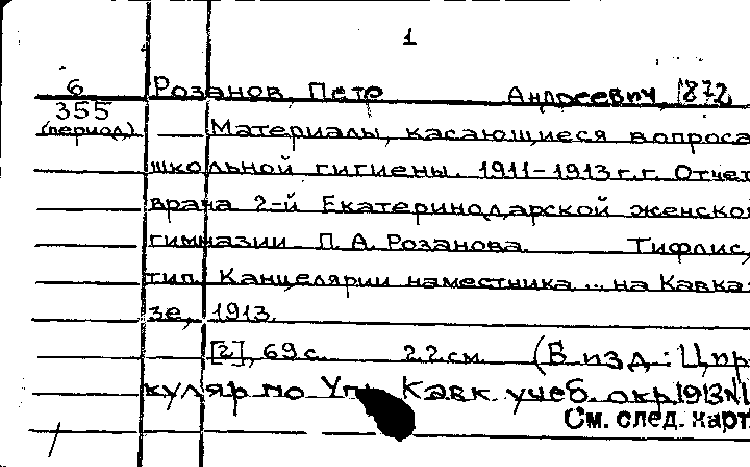 1
6 Розанов, Петр Андреевич, 1872
355 (период.) Материалы, касающиеся вопроса
школьной гигиены. 1911-1913 г.г. Отчет
врача 2-й Екатеринодарской женской
гимназии П. А. Розанова. Тифлис,
тип. Канцелярии наместника... на Кавка-
зе, 1913.
[2], 69 с. 22 см. (В изд.: Цир-
куляр по Упр. Кавк. учеб. окр. 1913 №1
См. след. карт.